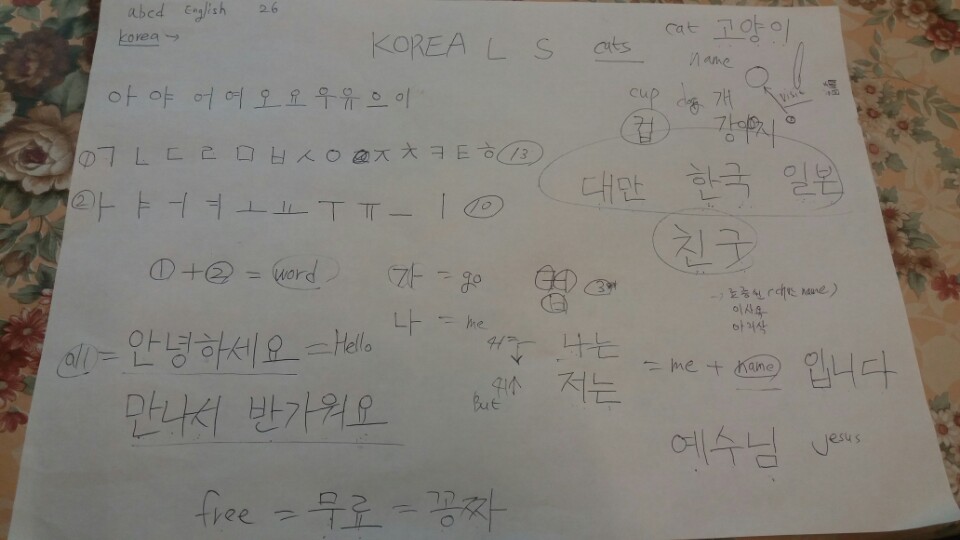 abcd English 26
korea →
KOREA L S cats
cat 고양이
name
아 야 어 여 오 요 우 유 으 이
cup dog 개
컵 강아지
① ㄱ ㄴ ㄷ ㄹ ㅁ ㅂ ㅅ ㅇ ㅈ ㅊ ㅋ ㅌ ㅎ 13
대만 한국 일본
② ㅏ ㅑ ㅓ ㅕ ㅗ ㅛ ㅜ ㅠ ㅡ ㅣ 10
친구
① + ② = word
가 = go
나 = me
all = 안녕하세요 = Hello
만나서 반가워요
나는
저는
But
= me + name 입니다
예수님 Jesus
free = 무료 = 공짜